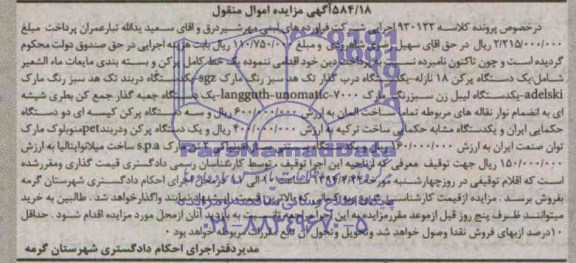 ۵۸۴/۱۸ آگهی مزایده اموال منقول
درخصوص پرونده کلاسه ۹۳۰۱۲۳ اجرایی شرکت فرآورده های لبنی مهر و آقای سعید یداله تبارعمران پرداخت مبلغ
۲/۲۱۵/۰۰۰/۰۰۰ ریال در حق آقای سهیل رضوی شاهرودی و مبلغ ۱۱۰/۷۵۰/۰۰۰ ریال بابت هزینه اجرایی در حق صندوق دولت محکوم
گردیده است و چون تاکنون نامبرده نسبت به پرداخت دین خود اقدامی ننموده یک خط کامل پرکن و بسته بندی مایعات ماء الشعیر
شامل یک دستگاه پرکن ۱۸ نازله-یک دستگاه درب گذار تک هد سبز رنگ مارک ogz-یک دستگاه دربند تک هد سبز رنگ مارک
adelski-یک دستگاه لیبل زن سبزرنگ مارک langguth-unomatic-۷۰۰۰-یک دستگاه جعبه گذار جمع کن بطری شیشه
ای به انضمام نوار نقاله های مربوطه تماما ساخت المان به ارزش ۶۰۰/۰۰۰/۰۰۰ ریال و سه دستگاه پرکن کیسه ای دو دستگاه
حکمایی ایران و یکدستگاه مشابه حکمایی ساخت ترکیه به ارزش ۴۰۰/۰۰۰/۰۰۰ ریال و یک دستگاه پرکن ودربند pet منوبلوک مارک
توان صنعت ایران به ارزش ۱۶۰/۰۰۰/۰۰۰ مارک s.p.a ساخت میلانوایتالیا به ارزش
۱۵۰/۰۰۰/۰۰۰ ریال جهت توقیف معرفی که از ناحیه این اجرا توقیف توسط کارشناسان رسمی دادگستری قیمت گذاری ومقررشده
است که اقلام توقیفی در روزچهارشنبه مورخه ساعت ۱۰ الی اجرای احکام دادگستری شهرستان گرمه
بفروش برسد . مزایده ازقیمت کارشناسی واگذارخواهد شد . طالبین به خرید
میتوانند ظرف پنج روز قبل ازموعد مقررمزایده به این اجرا مراجعه به بازدید آنان ازمحل مورد مزایده اقدام شود . حداقل
۱۰درصد ازبهای فروش نقدا وصول خواهد شد وتحویل و تحول آن تابع مقررات مربوطه خواهد بود .
مدیردفتراجرای احکام دادگستری شهرستان گرمه
ParsNamadData
۰۲۱-۸۸۳۴۹۶۷۰-۵